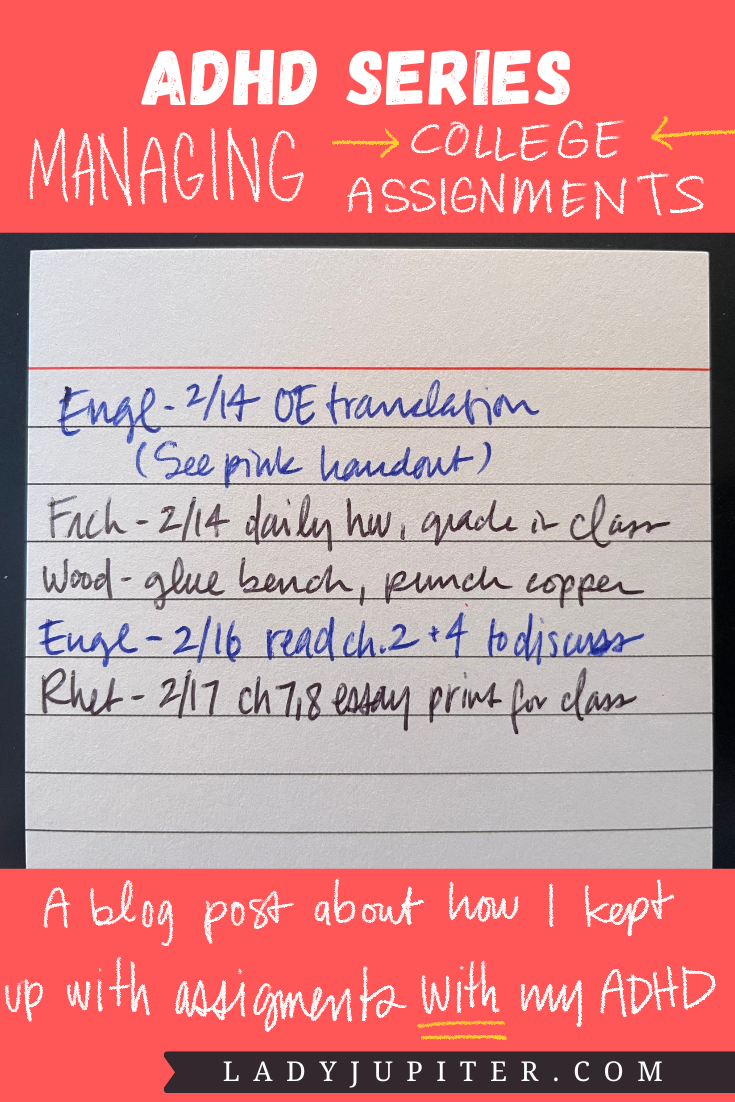 ADHD SERIES
MANAGING → COLLEGE ←
ASSIGNMENTS
Engl - 2/14 OE translation
(See pink handout)
Frch - 2/14 daily hw, grade in class
Wood - glue bench, punch copper
Engl - 2/16 read ch. 2 + 4 to discuss
Rhet - 2/17 ch 7,8 essay print for class
A blog post about how I kept
up with assigments with my ADHD
LADYJUPITER.COM